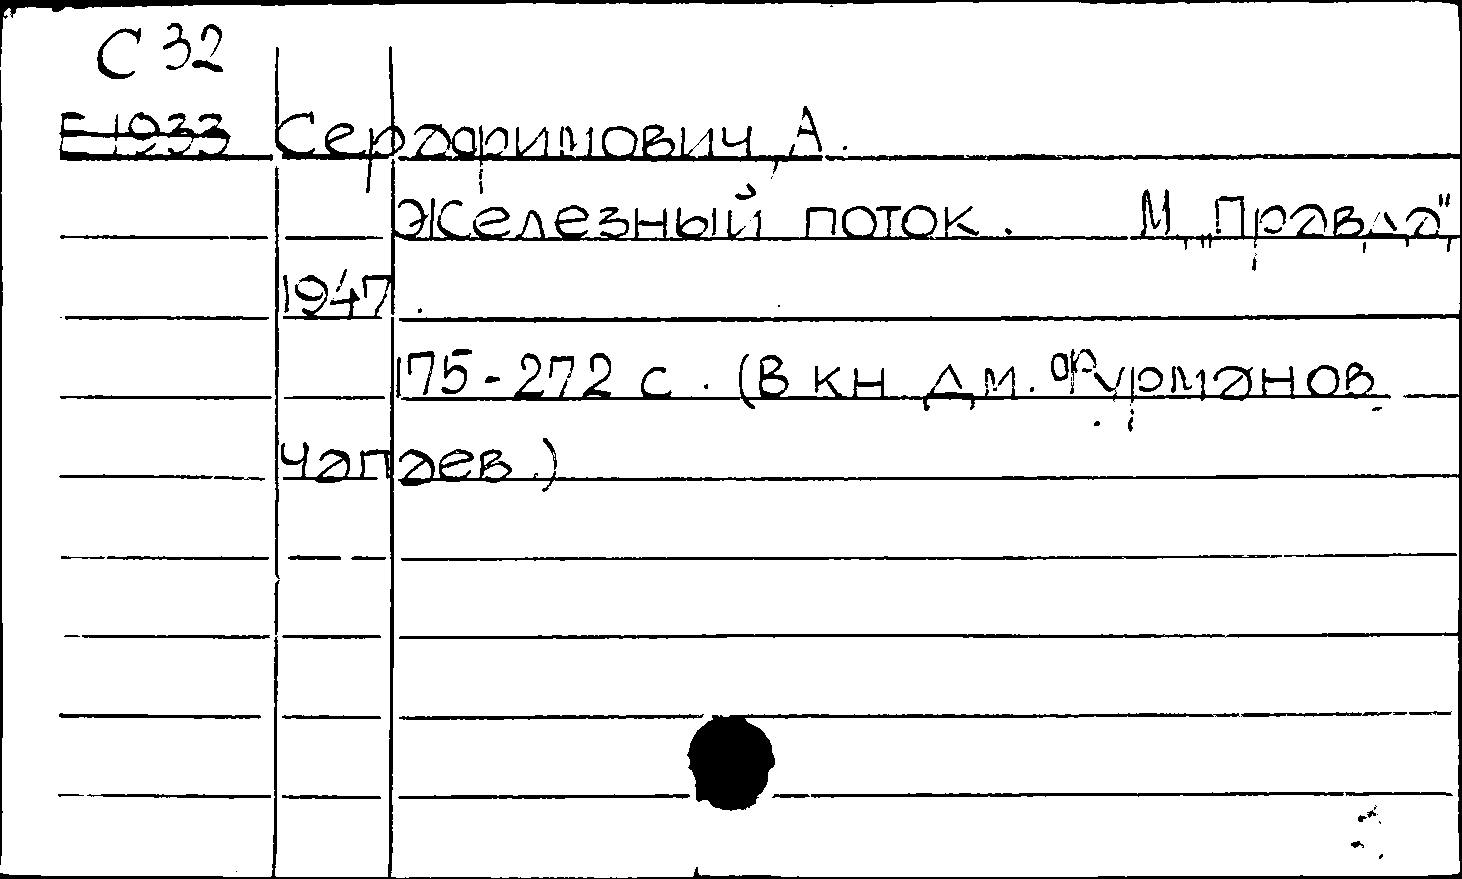 С 32
Е 1933 Серафимович, А.
Железный поток. М., „Правда",
1947.
175-272 с. (В кн Дм. Фурманов
Чапаев.)